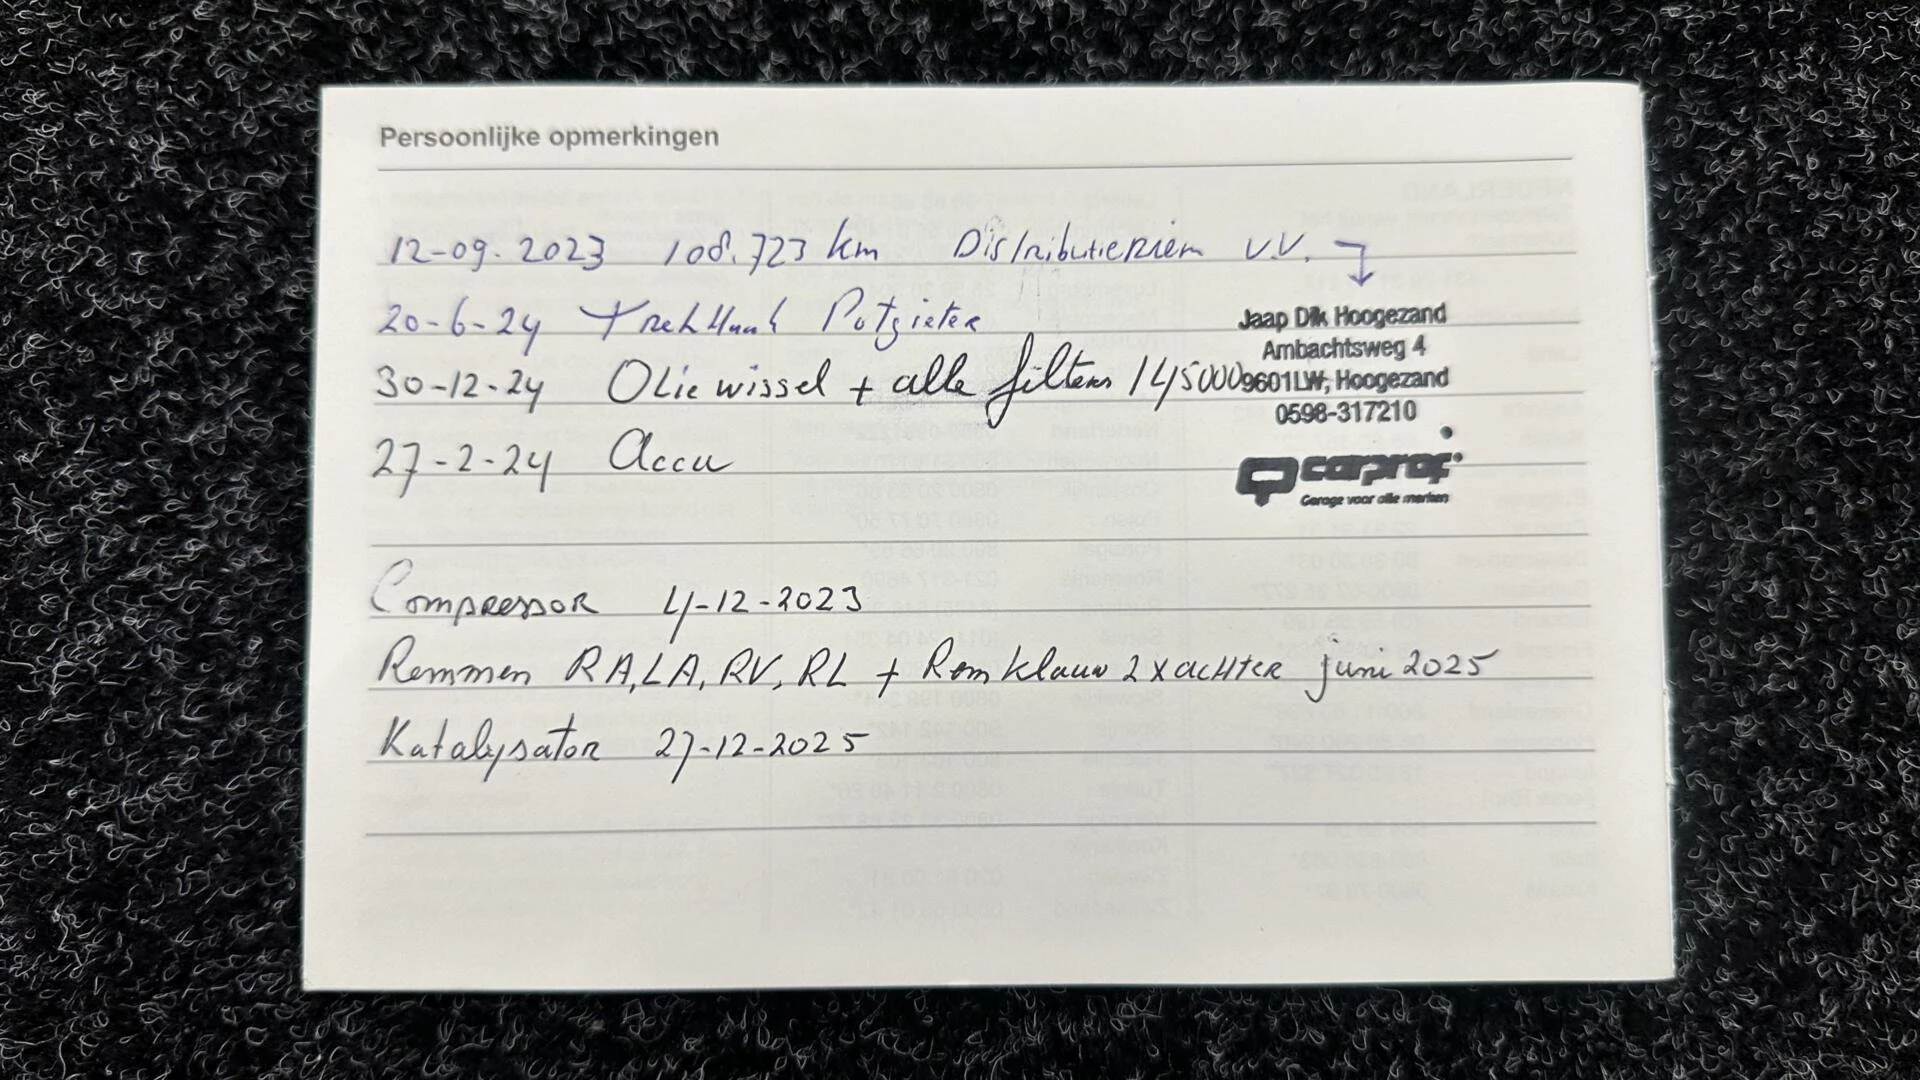 Persoonlijke opmerkingen
12-09-2023 108.723 km Distributieriem V.V.
20-6-24 Trekhaak Potgieter
30-12-24 Oliewissel + alle filters 145000
27-2-24 Accu
Jaap Dik Hoogezand
Ambachtsweg 4
9601LW, Hoogezand
0598-317210
carprof
Garage voor alle merken
Compressor 4-12-2023
Remmen RA, LA, RV, RL + Remklauw 2x achter juni 2025
Katalysator 27-12-2025